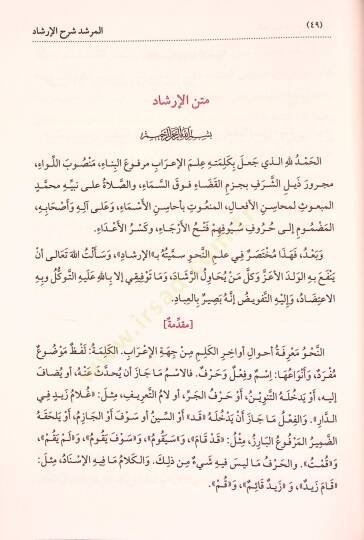 (٤٩) المرشد شرح الإرشاد
متن الإرشاد
بسم الله الرحمن الرحيم
الحَمْدُ للهِ الذي جَعلَ بِكَلِمَتهِ عِلمَ الإعرابِ مرفوعَ البِناءِ، مَنْصُوبَ اللِّواءِ،
مجرورَ ذَيلِ الشَّرَفِ بجزمِ القَضَاءِ فوقَ السَّمَاءِ، والصَّلاةُ على نَبيِّهِ محمَّدٍ
المبعوثِ لمحاسِنِ الأفعالِ، المنعُوتِ بأحاسنِ الأَسْمَاءِ، وَعَلى آلِهِ وَأَصْحَابِهِ،
المَضْمُومِ إلى حُرُوفِ سُيُوفِهِمْ فَتْحُ الأَرْجَاءِ، وكَسْرُ الأَعْدَاءِ.
وَبَعْدُ، فَهَذَا مُخْتَصَرٌ في عِلمِ النَّحوِ سمَّيْتُهُ بـ«الإرشادِ»، وَسَأَلْتُ اللهَ تَعَالى أنْ
يَنْفَعَ بِهِ الوَلَدَ الأعَزَّ وَكلَّ مَنْ يُحَاوِلُ الرَّشَادَ، وَمَا تَوْفِيقِي إلا بِاللهِ عَلَيْهِ التَّوكُّلُ وَبِهِ
الاعتِضَادُ، وَإِلَيْهِ التَّفْوِيضُ إنَّهُ بَصِيرٌ بِالعِبادِ.
[مقدِّمةٌ]
النَّحْوُ مَعْرِفَةُ أحوالِ أواخِرِ الكَلِمِ مِنْ جِهَةِ الإِعْرَابِ. الكَلِمَةُ: لَفْظٌ مَوْضُوعٌ
مُفْرَدٌ، وَأَنْوَاعُهَا: اِسْمٌ وفِعْلٌ وحَرْفٌ. فالاسْمُ مَا جَازَ أنْ يُحدَّثَ عَنْهُ، أو يُضَافَ
إليهِ، أَوْ يَدْخُلَهُ التَّنوِيْنُ، أَوْ حَرْفُ الجَرِّ، أو لامُ التَّعرِيفِ، مِثْلُ: «غُلامُ زَيدٍ في
الدَّارِ». والفِعْلُ مَا جَازَ أنْ يَدْخُلَهُ «قَد» أَوْ السِّينُ أو سَوْفَ أوْ الجَازِمُ، أَوْ يَلحَقَهُ
الضَّمِيرُ المَرْفُوعُ البَارِزُ، مِثْلُ: «قَدْ قَامَ»، وَ«سَيَقُومُ»، وَ«سَوْفَ يَقُومُ»، وَ«لَمْ يَقُمْ»،
وَ«قُمْتُ». والحَرْفُ مَا لَيسَ فِيهِ شَيءٌ مِن ذلِكَ. والكَلامُ مَا فِيهِ الإسْنَادُ، مِثلُ:
«قَامَ زَيدٌ»، وَ «زَيدٌ قَائِمٌ»، وَ«قُمْ».